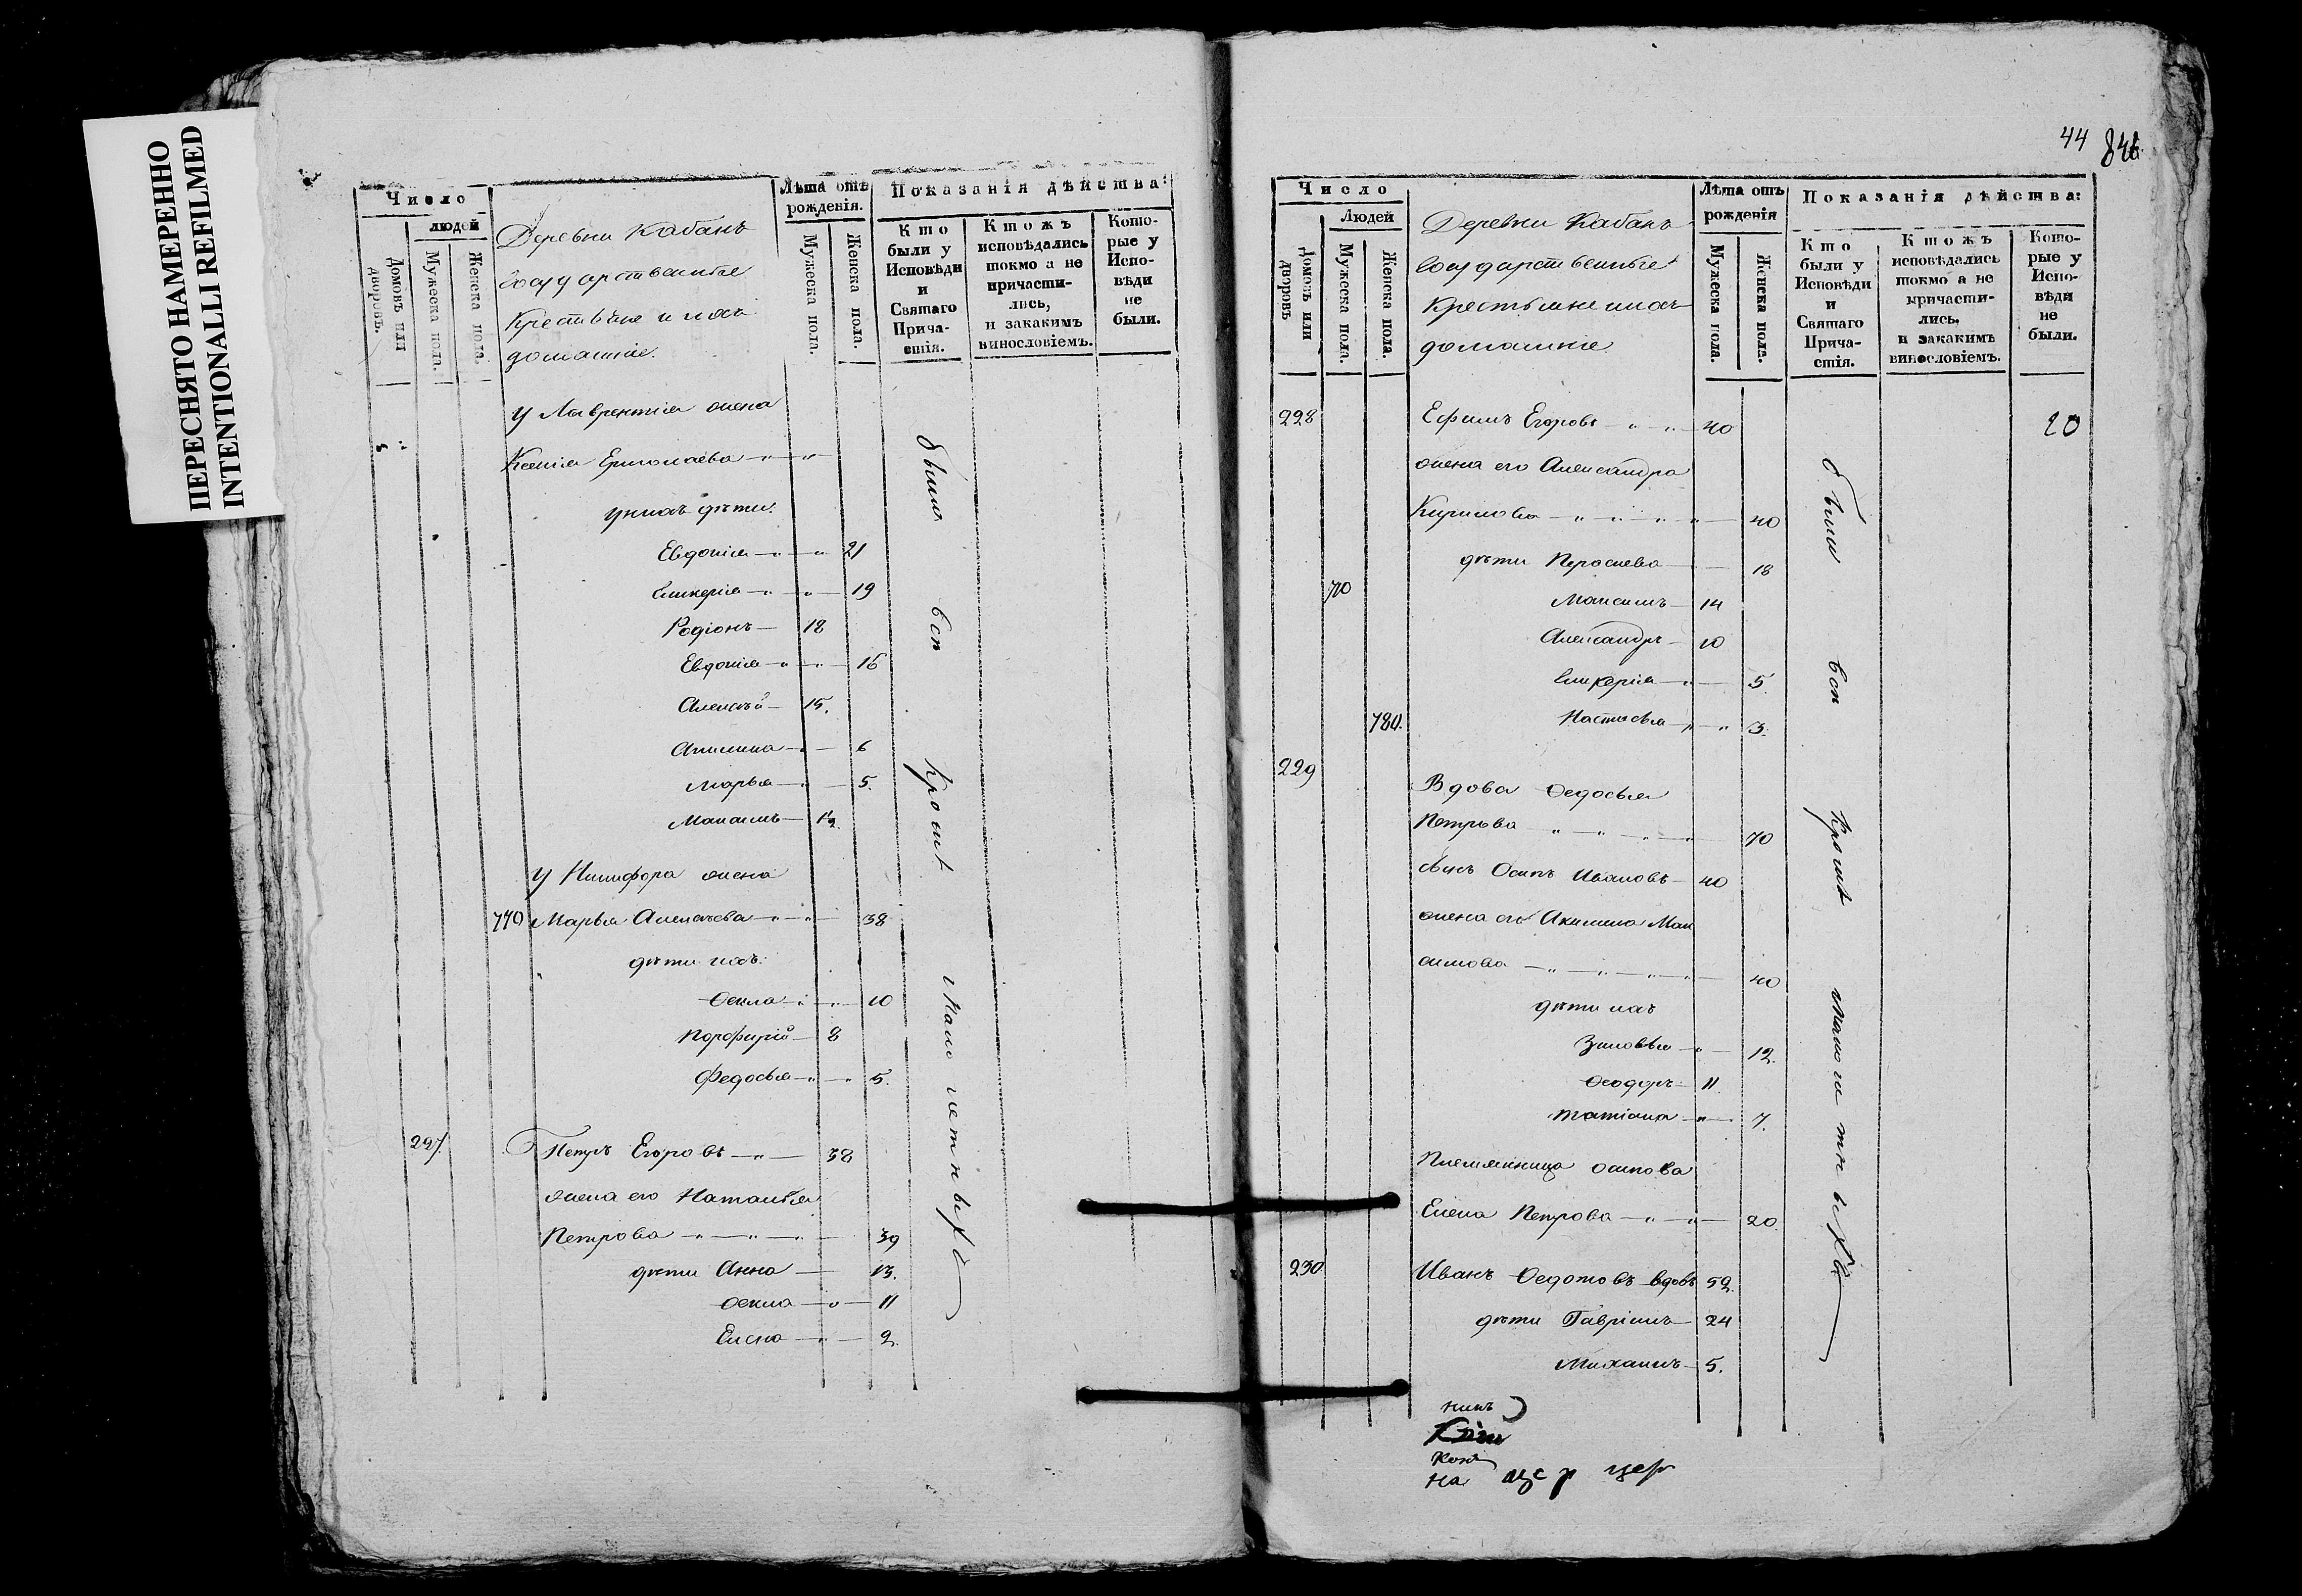 ПЕРЕСНЯТО НАМЕРЕННО
INTENTIONALLI REFILMED
Число
людей
Домовъ или дворовъ.
Мужеска пола.
Женска пола.
Деревни Кабанъ
Государственные
Крестьяне и ихъ
домашніе.
Лѣта отъ рожденія.
Мужеска пола.
Женска пола.
Показанія дѣйства:
Кто были у Исповѣди и Святаго Прича-стія.
Ктожъ исповѣдались токмо а не причасти-лись, и закакимъ винословіемъ.
Кото-рые у Испо-вѣди не были.
у Лаврентія жена
Ксенія Ермолаева
у нихъ дѣти
Евдокія 21
Гликерія 19
Родіонъ 18
Евдокія 16
Алексѣй 15.
Акилина 6
Марья 5.
Максимъ
у Никифора жена
770 Марья Алексѣева 38
дѣти ихъ:
Ѳекла 10
Порфирій 8
Федосья 5.
Петръ Егоровъ 38
жена его Наталья
Петрова 39
дѣти Анна 13.
Ѳекла 11
Елена 2.
были всѣ кромѣ малолетныхъ
44 846
Число
Людей
Домовъ или дворовъ
Мужеска пола.
Женска пола.
Деревни Кабанъ
Государственные
Крестьяне ихъ
домашніе
Лѣта отъ рожденія
Мужеска пола.
Женска пола.
Показанія дѣйства:
Кто были у Исповѣди и Святаго Прича-стія.
Ктожъ исповѣдались токмо а не причасти-лись. и закакимъ винословіемъ.
Кото-рые у Испо-вѣди не были.
228 Ефимъ Егоровъ 40 20
жена его Александра
Кирилова 40
дѣти Парасковья 18
Максимъ 14
Александръ 10
Гликерія 5.
780. Настасья 3.
229
Вдова Ѳедосья
Петрова 70
сынъ Осипъ Ивановъ 40
жена его Акилина Мак
симова 40
дѣти ихъ
Зиновья 12.
Ѳеодоръ 11
Татіана 7.
Племянница осипова
Елена Петрова 20.
230 Иванъ Ѳедотовъ вдовъ 52.
дѣти Гавріилъ 24
Михаилъ 5.
были всѣ кромѣ малолетныхъ
на цер цер